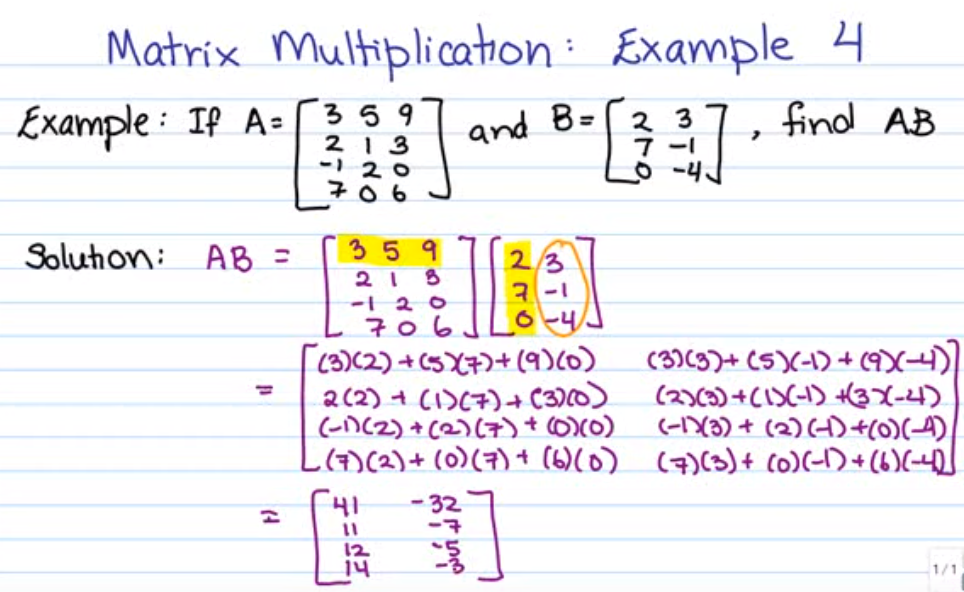 Matrix Multiplication: Example 4
Example: If A = [3 5 9 and B = [2 3 , find AB
2 1 3 7 -1
-1 2 0 0 -4]
7 0 6]
Solution: AB = [3 5 9 [2 3
2 1 3 7 -1
-1 2 0 0 -4]
7 0 6]
= [(3)(2)+(5)(7)+(9)(0) (3)(3)+(5)(-1)+(9)(-4)
2(2)+(1)(7)+(3)(0) (2)(3)+(1)(-1)+(3)(-4)
(-1)(2)+(2)(7)+(0)(0) (-1)(3)+(2)(-1)+(0)(-4)
(7)(2)+(0)(7)+(6)(0) (7)(3)+(0)(-1)+(6)(-4)]
= [41 -32
11 -7
12 -5
14 -3]
1/1